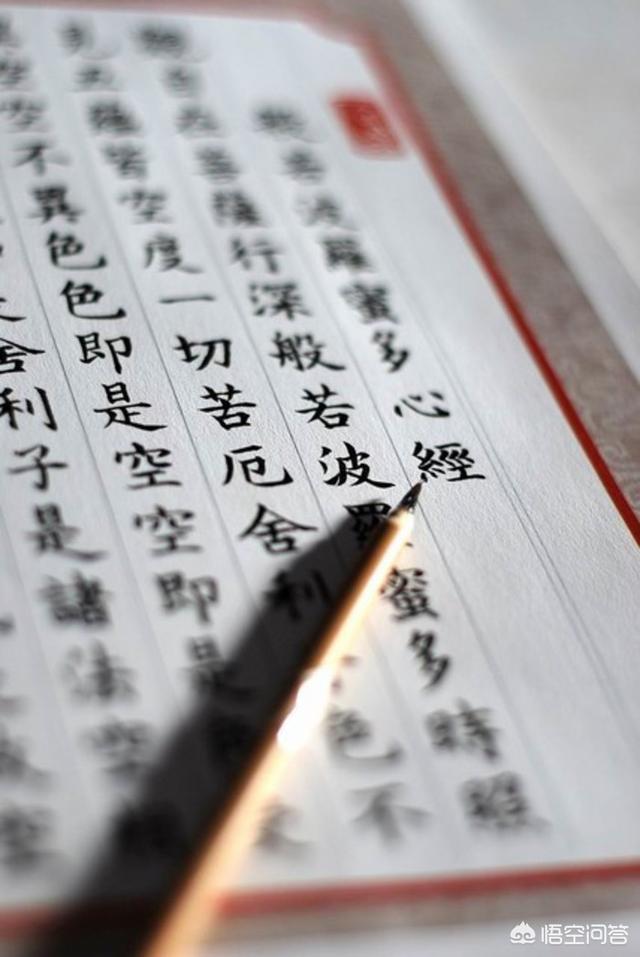 般若波羅蜜多心經
觀自在菩薩行深般若波羅蜜多時照
見五蘊皆空度一切苦厄舍利色不
空空不異色色即是空空即是色
舍利子是諸法空相
悟空问答